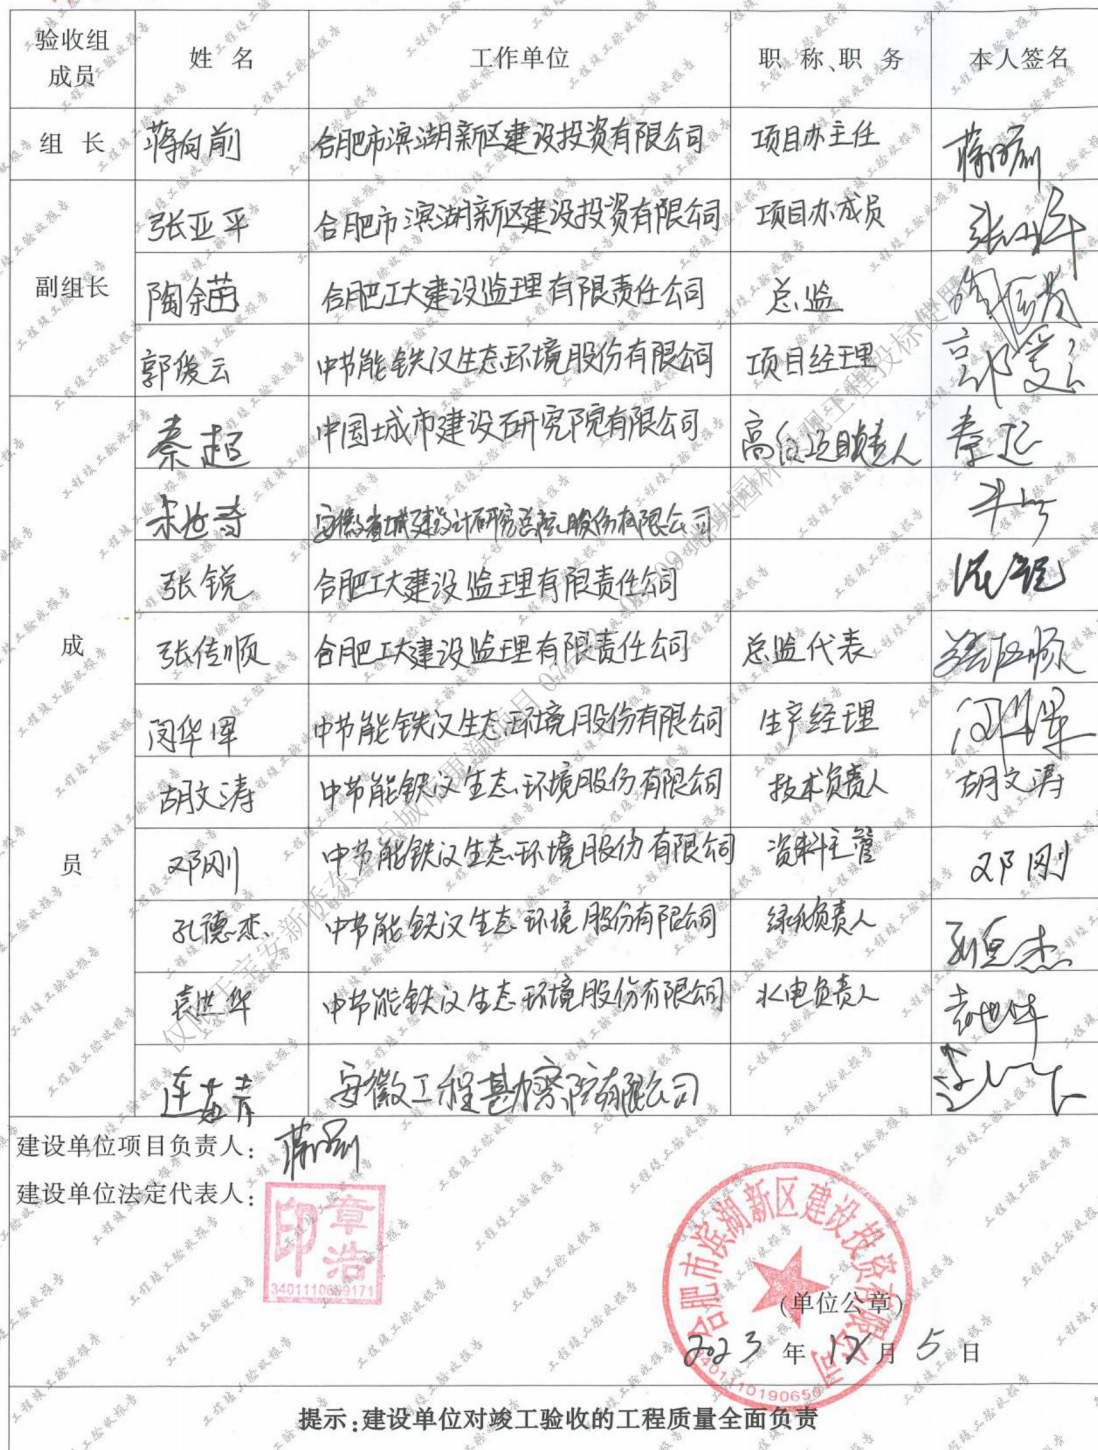 验收组成员 姓名 工作单位 职称、职务 本人签名
组长 蒋向前 合肥市滨湖新区建设投资有限公司 项目办主任
副组长
张亚平 合肥市滨湖新区建设投资有限公司 项目办成员
陶余苗 合肥工大建设监理有限责任公司 总监
郭俊云 中节能铁汉生态环境股份有限公司 项目经理
成员
秦起 中国城市建设研究院有限公司 秦起
张锐 合肥工大建设监理有限责任公司 张锐
张传顺 合肥工大建设监理有限责任公司 总监代表 张传顺
闵华军 中节能铁汉生态环境股份有限公司 生产经理
胡文涛 中节能铁汉生态环境股份有限公司 技术负责人 胡文涛
邓刚 中节能铁汉生态环境股份有限公司 资料主管 邓刚
孔德杰 中节能铁汉生态环境股份有限公司 绿化负责人 孔德杰
袁世华 中节能铁汉生态环境股份有限公司 水电负责人 袁世华
连苗青 安徽工程勘察院有限公司
建设单位项目负责人:
建设单位法定代表人:
章浩印
合肥市滨湖新区建设投资有限公司
(单位公章)
2023年12月5日
提示:建设单位对竣工验收的工程质量全面负责
工程竣工验收报告